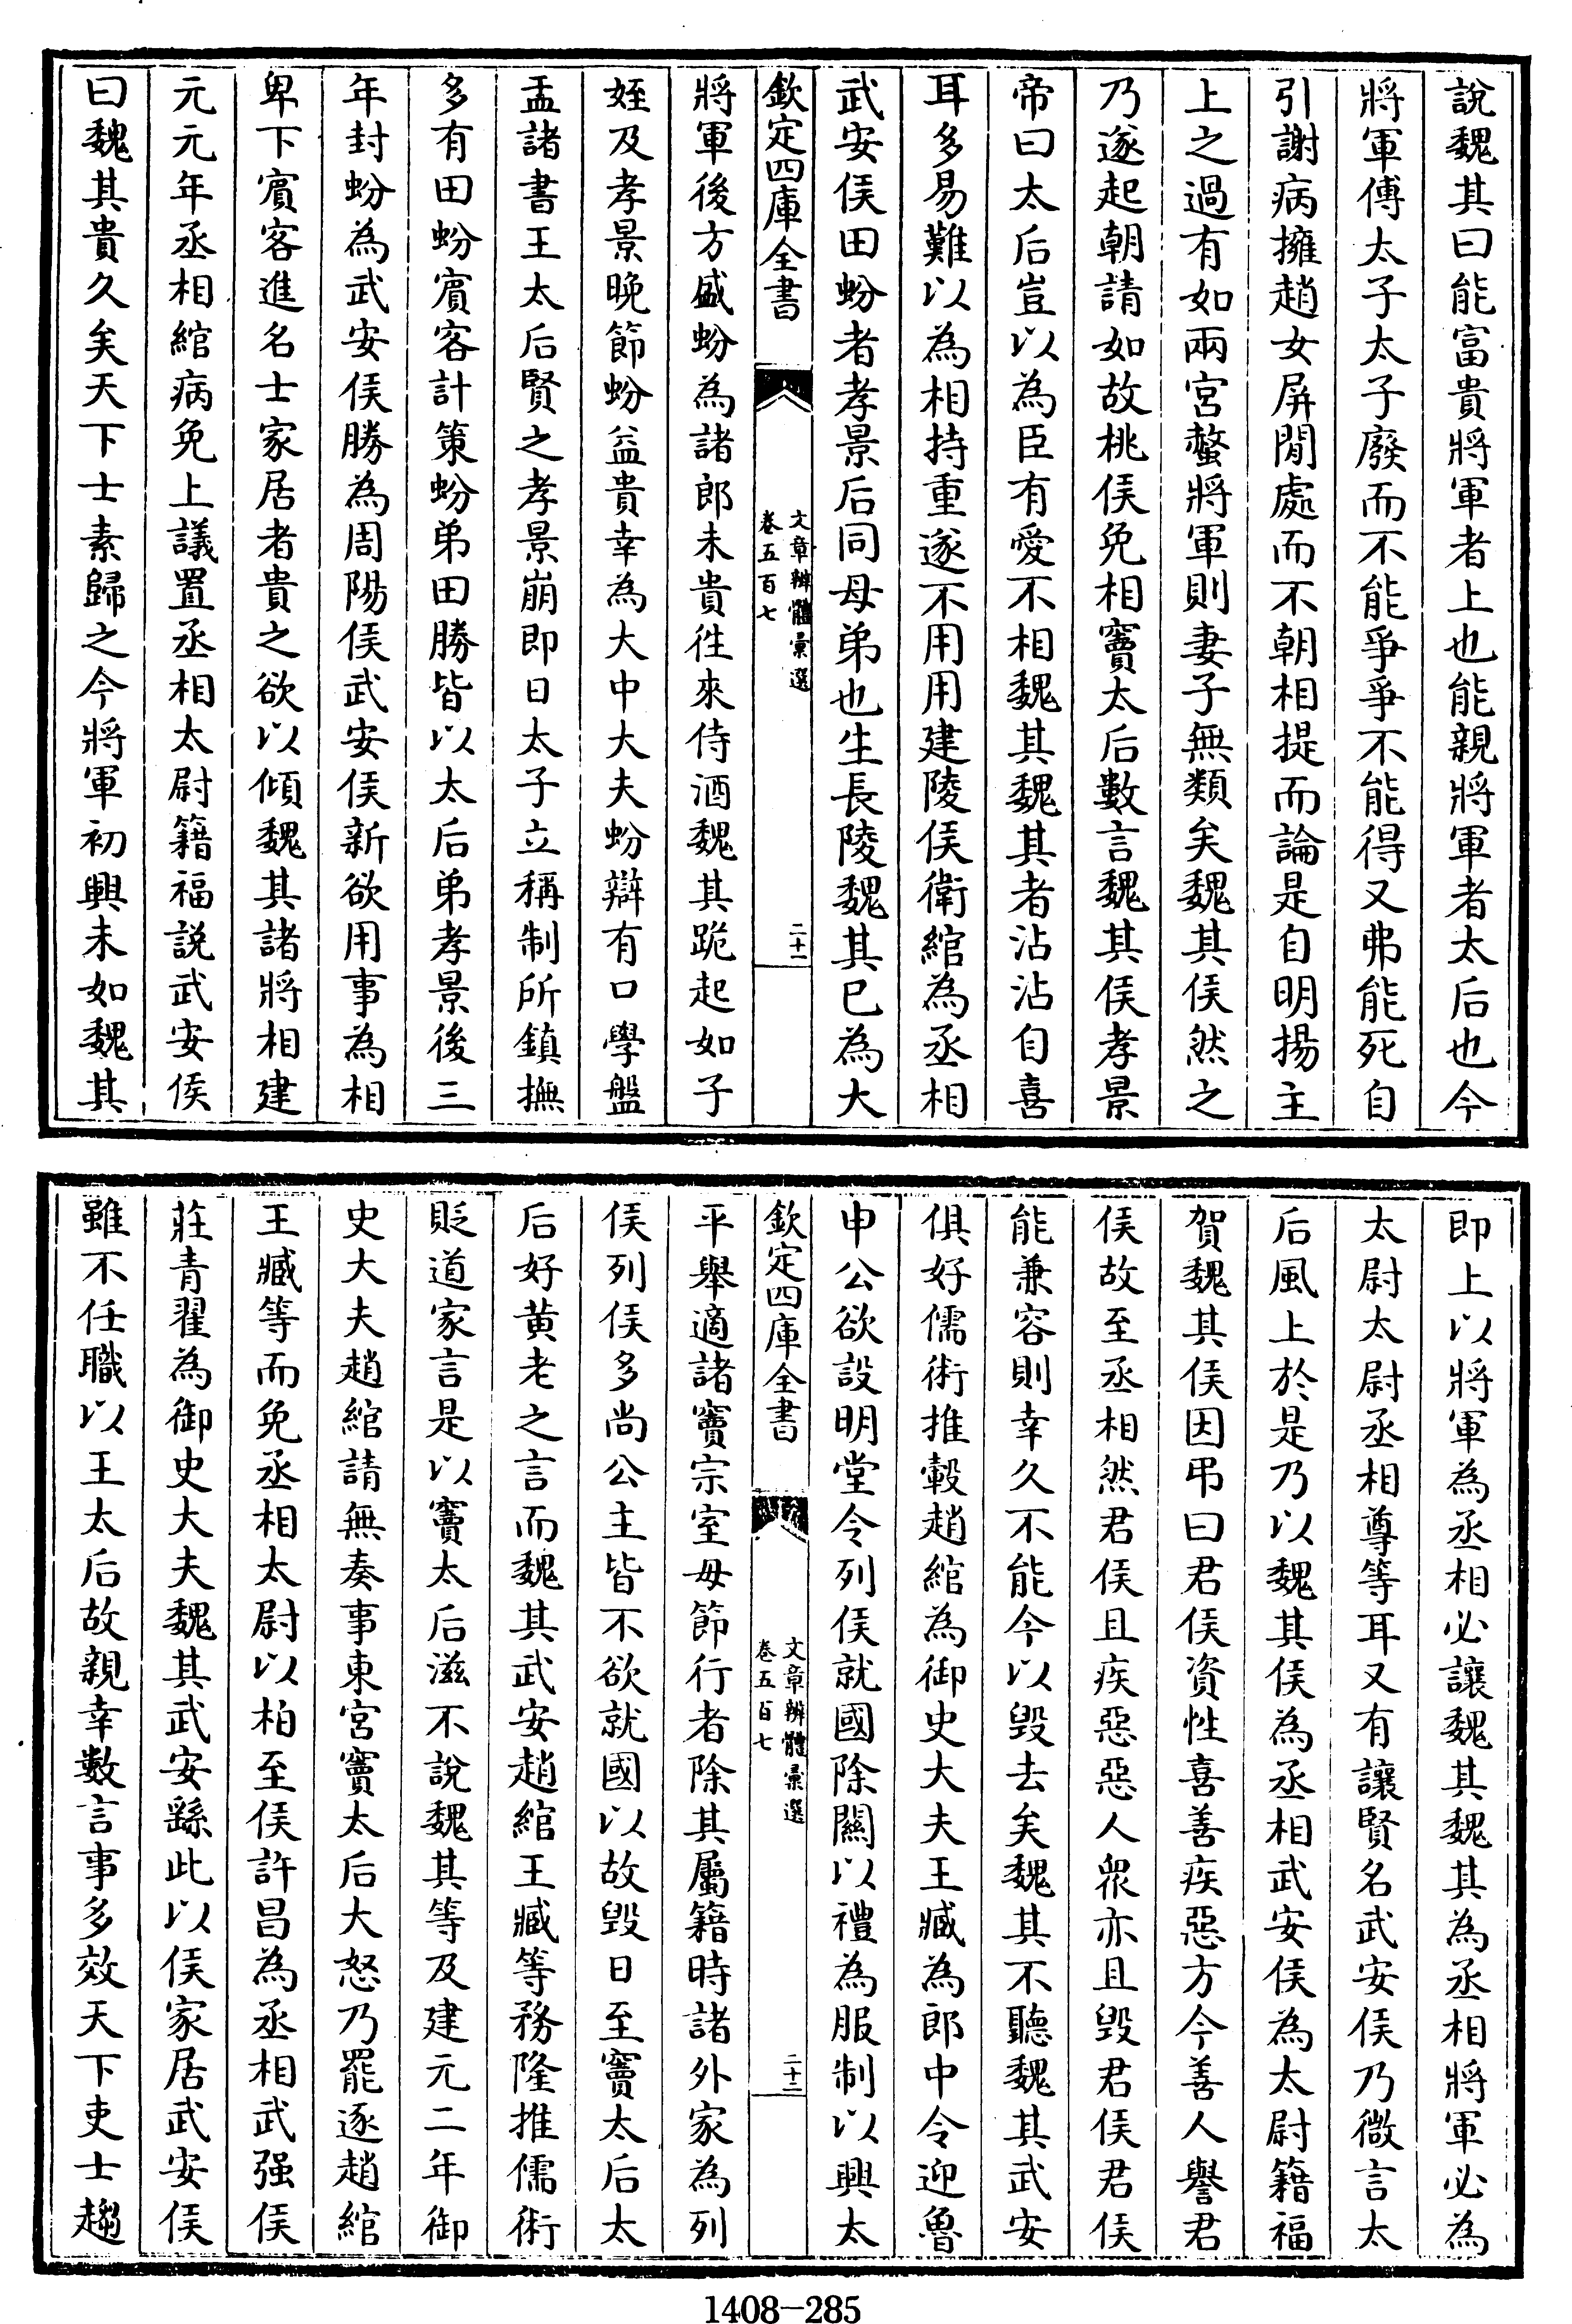 說魏其曰能富貴將軍者上也能親將軍者太后也今
將軍傅太子太子廢而不能爭爭不能得又弗能死自
引謝病擁趙女屏閒處而不朝相提而論是自明揚主
上之過有如兩宮螫將軍則妻子無類矣魏其侯然之
乃遂起朝請如故桃侯免相竇太后數言魏其侯孝景
帝曰太后豈以為臣有愛不相魏其魏其者沾沾自喜
耳多易難以為相持重遂不用用建陵侯衛綰為丞相
武安侯田蚡者孝景后同母弟也生長陵魏其已為大
欽定四庫全書
文章辨體彙選
卷五百七
二十一
將軍後方盛蚡為諸郎未貴徃來侍酒魏其跪起如子
姪及孝景晚節蚡益貴幸為大中大夫蚡辯有口學盤
盂諸書王太后賢之孝景崩即日太子立稱制所鎮撫
多有田蚡賓客計策蚡弟田勝皆以太后弟孝景後三
年封蚡為武安侯勝為周陽侯武安侯新欲用事為相
卑下賓客進名士家居者貴之欲以傾魏其諸將相建
元元年丞相綰病免上議置丞相太尉籍福說武安侯
曰魏其貴久矣天下士素歸之今將軍初興未如魏其
即上以將軍為丞相必讓魏其魏其為丞相將軍必為
太尉太尉丞相尊等耳又有讓賢名武安侯乃微言太
后風上於是乃以魏其侯為丞相武安侯為太尉籍福
賀魏其侯因弔曰君侯資性喜善疾惡方今善人譽君
侯故至丞相然君侯且疾惡惡人衆亦且毀君侯君侯
能兼容則幸久不能今以毀去矣魏其不聽魏其武安
俱好儒術推轂趙綰為御史大夫王臧為郎中令迎魯
申公欲設明堂令列侯就國除關以禮為服制以興太
欽定四庫全書
文章辨體彙選
卷五百七
二十二
平舉適諸竇宗室毋節行者除其屬籍時諸外家為列
侯列侯多尚公主皆不欲就國以故毀日至竇太后太
后好黃老之言而魏其武安趙綰王臧等務隆推儒術
貶道家言是以竇太后滋不說魏其等及建元二年御
史大夫趙綰請無奏事東宮竇太后大怒乃罷逐趙綰
王臧等而免丞相太尉以柏至侯許昌為丞相武强侯
莊青翟為御史大夫魏其武安繇此以侯家居武安侯
雖不任職以王太后故親幸數言事多效天下吏士趨
1408-285